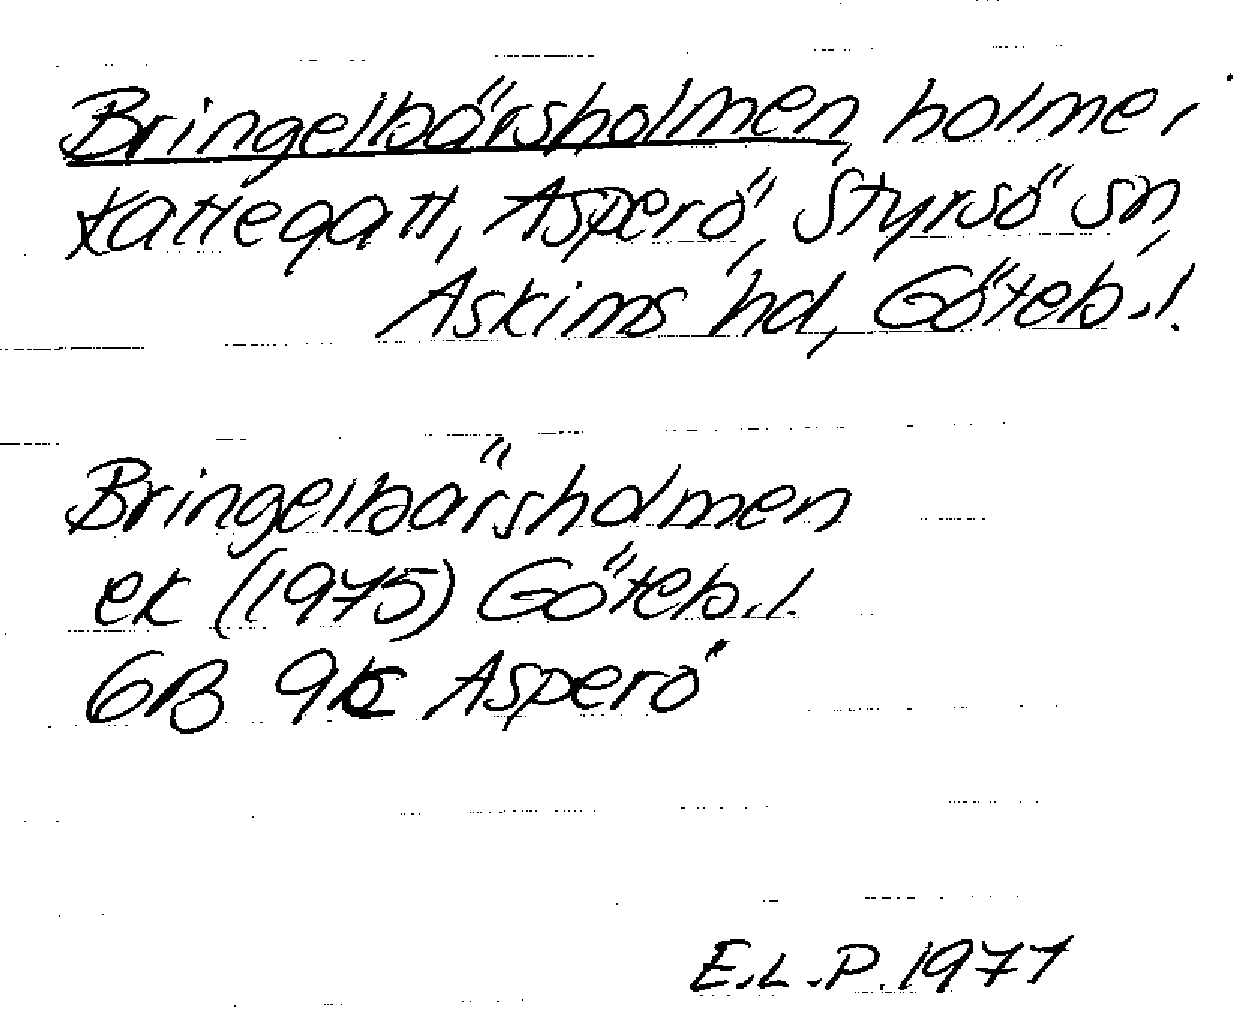 Bringelbärsholmen, holme i
Kattegatt, Asperö, Styrsö sn,
Askims hd, Göteb. l.
Bringelbärsholmen
ek (1975) Göteb. l.
6B 9c Asperö
E.L.P. 1977